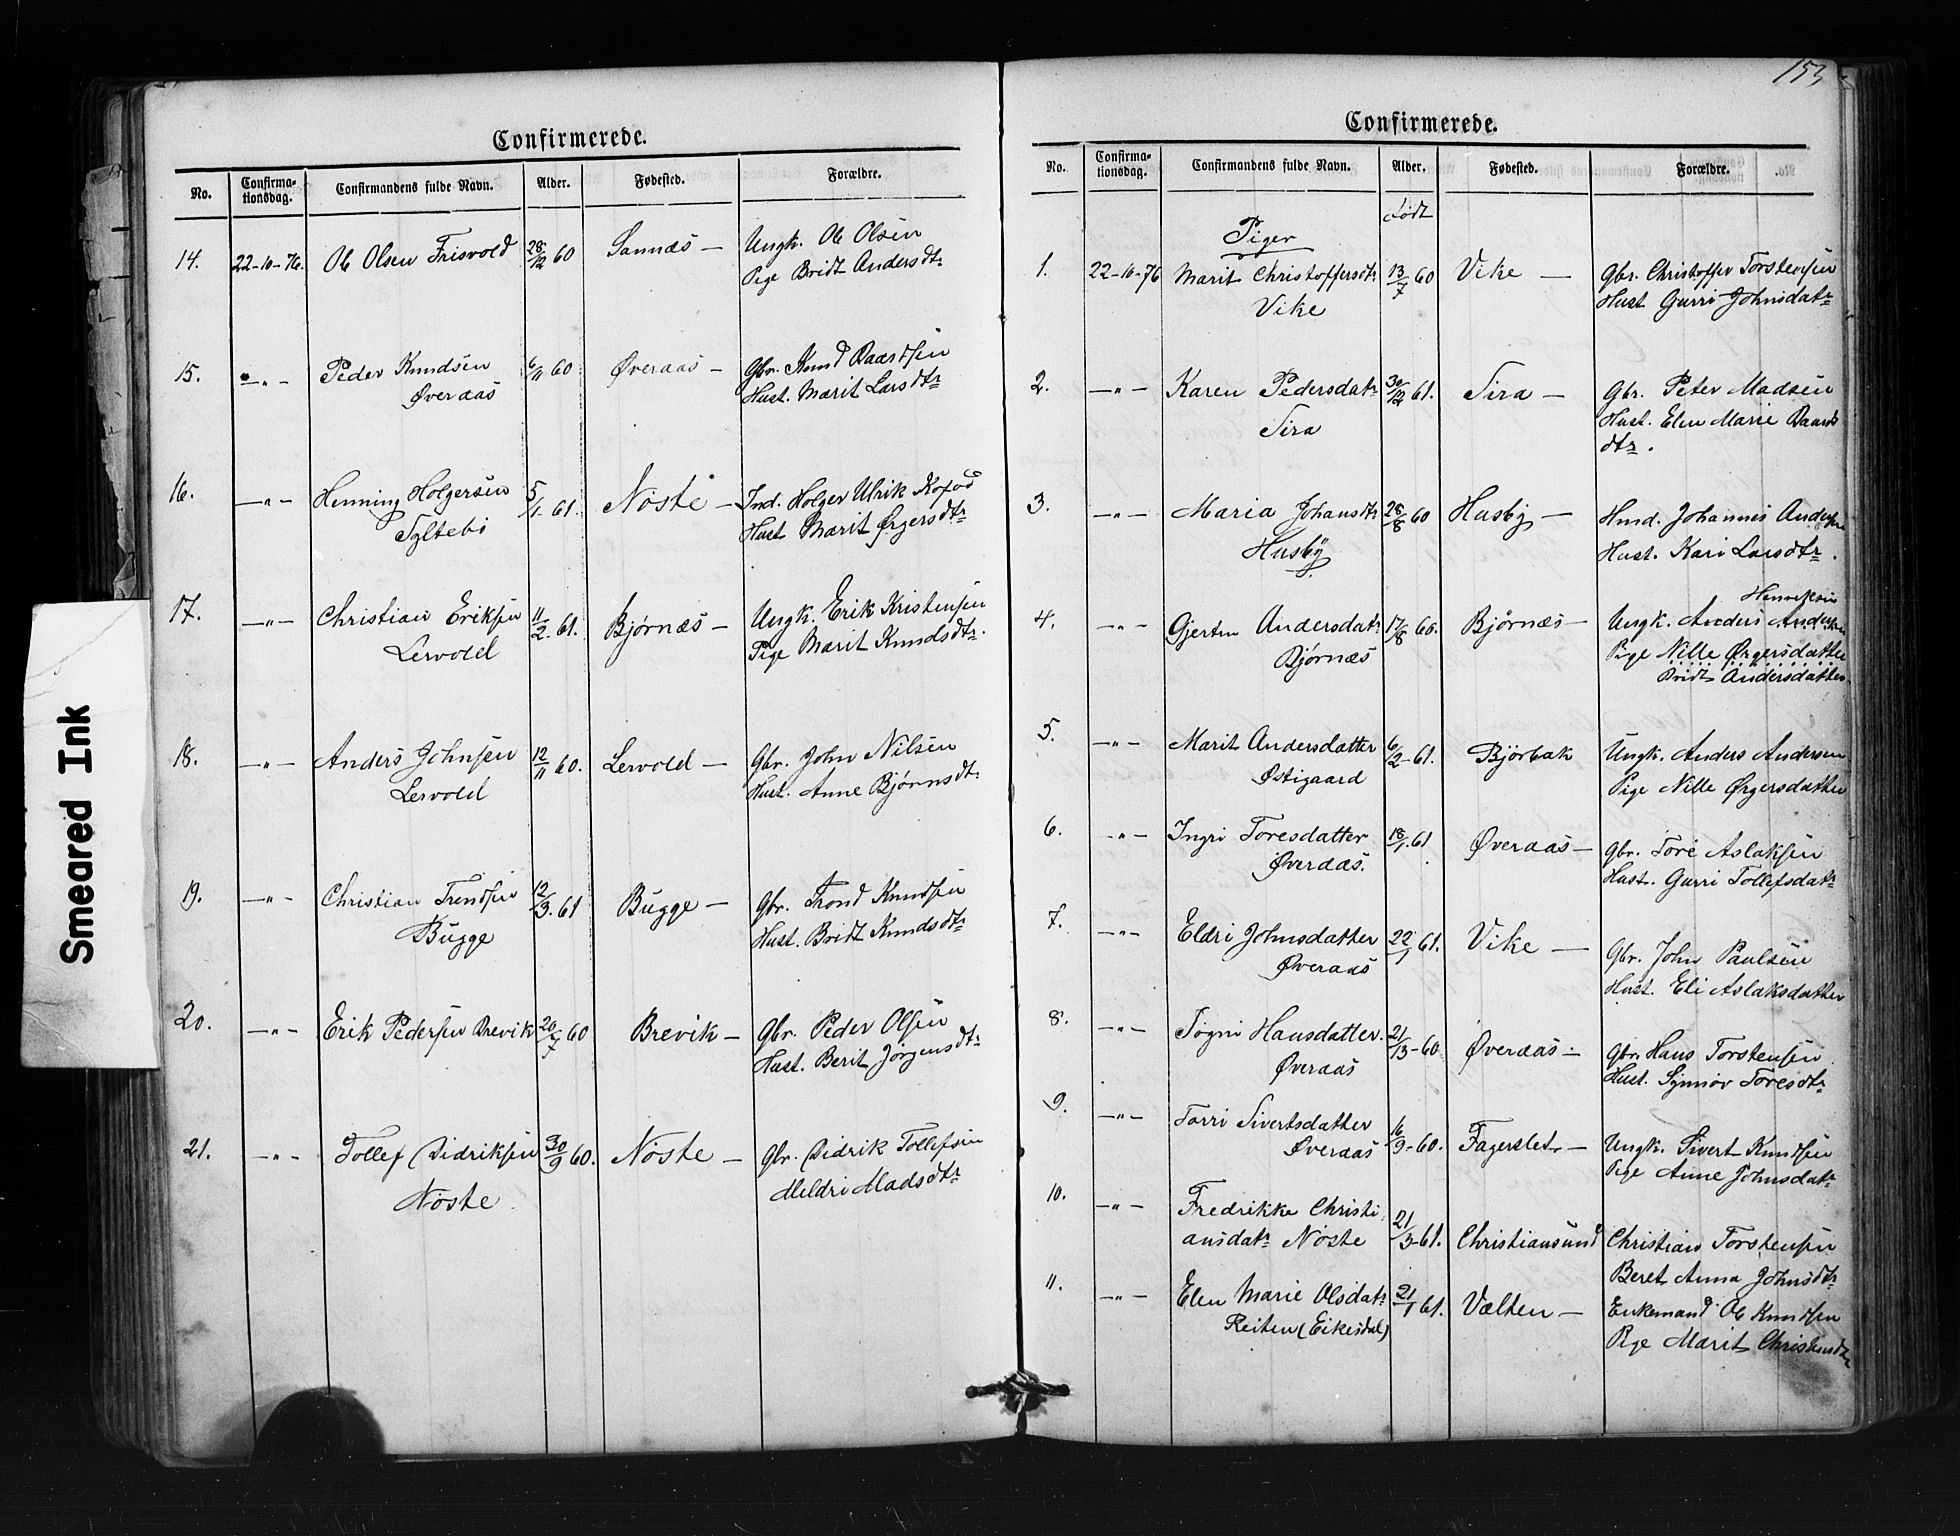 Confirmerede.
No. Confirma-tionsdag. Confirmandens fulde Navn. Alder. Fødested. Forældre.
14. 22-10-76. Ole Olsen Frisvold 28/12 60 Sannæs — Ungk. Ole Olsen
Pige Bridt Andersdtr
15. —"— Peder Knudsen 6/11 60 Øveraas — Gbr. Knud Baardsen
Øveraas Hust. Marit Larsdtr
16. —"— Henning Holgersen 5/1 61. Nöste — Ind. Holger Ulrik Kofod
Syltebö Hust Marit Ørgersdtr
17. —"— Christian Eriksen 11/2 61. Bjørnæs — Ungk. Erik Kristensen
Lervold Pige Marit Knudsdtr.
18. —"— Anders Johnsen 12/11 60. Lervold — Gbr. John Nilsen
Lervold Hust. Anne Bjørnsdtr
19. —"— Christian Trondsen 12/3. 61 Bugge — Gbr. Trond Knudsen
Bugge Hust. Bridt Knudsdtr
20. —"— Erik Pedersen Brevik 20/7 60 Brevik — Gbr. Peder Olsen
Hust. Berit Jörgensdtr
21. —"— Tollef Didriksen 30/9 60. Nöste — Gbr. Didrik Tollefsen
Nöste Meldri Madsdtr
Smeared Ink
153
Confirmerede.
No. Confirma-tionsdag. Confirmandens fulde Navn. Alder. Fødested. Forældre.
Födt
Piger
1. 22-10-76 Marit Christoffersdtr 13/7 60 Vike — Gbr. Christoffer Torstensen
Vike Hust Gurri Johnsdatr
2. —"— Karen Pedersdatr 30/12 61. Sira — Gbr. Peter Madsen
Sira Hust. Elen Marie Baards
dtr.
3. —"— Maria Johansdtr 28/8 60 Husby — Hmd. Johannes Andersen
Husby Hust. Kari Larsdtr.
Henriksen
4. —"— Andersdatr 17/8 60. Bjørnæs — Ungk. Anders Andersen
Bjørnæs Pige Nille Ørgersdatter
Bridt Andersdatter
5. —"— Marit Andersdatter 6/2-61. Bjørbak Ungk. Anders Andersen
Østigaard Pige Nille Ørgersdatter
6. —"— Ingri Toresdatter 18/1.61 Øveraas — Gbr. Tore Aslaksen
Øveraas. Hust. Gurri Tollefsdatr
7. —"— Eldri Johnsdatter 22/1 61. Vike — Gbr. John Paulsen
Øveraas Hust. Eli Aslaksdatter
8. —"— Sögni Hansdatter. 21/13-60 Øveraas — Gbr. Hans Torstensen
Øveraas Hust. Synnöv Toresdtr
9. —"— Torri Sivertsdatter 16/9-60. Fagerslet — Ungk. Sivert Knudsen
Øveraas Pige Anne Johnsdatr
10. —"— Fredrikke Christi
ansdatr Nöste 21/3-61. Christiansund Christian Torstensen
Beret Anna Johnsdtr
11. —"— Elen Marie Olsdatr 21/1 61. Vælten — Enkemand Ole Knudsen
Reiten (Eikesdal) Pige Marit